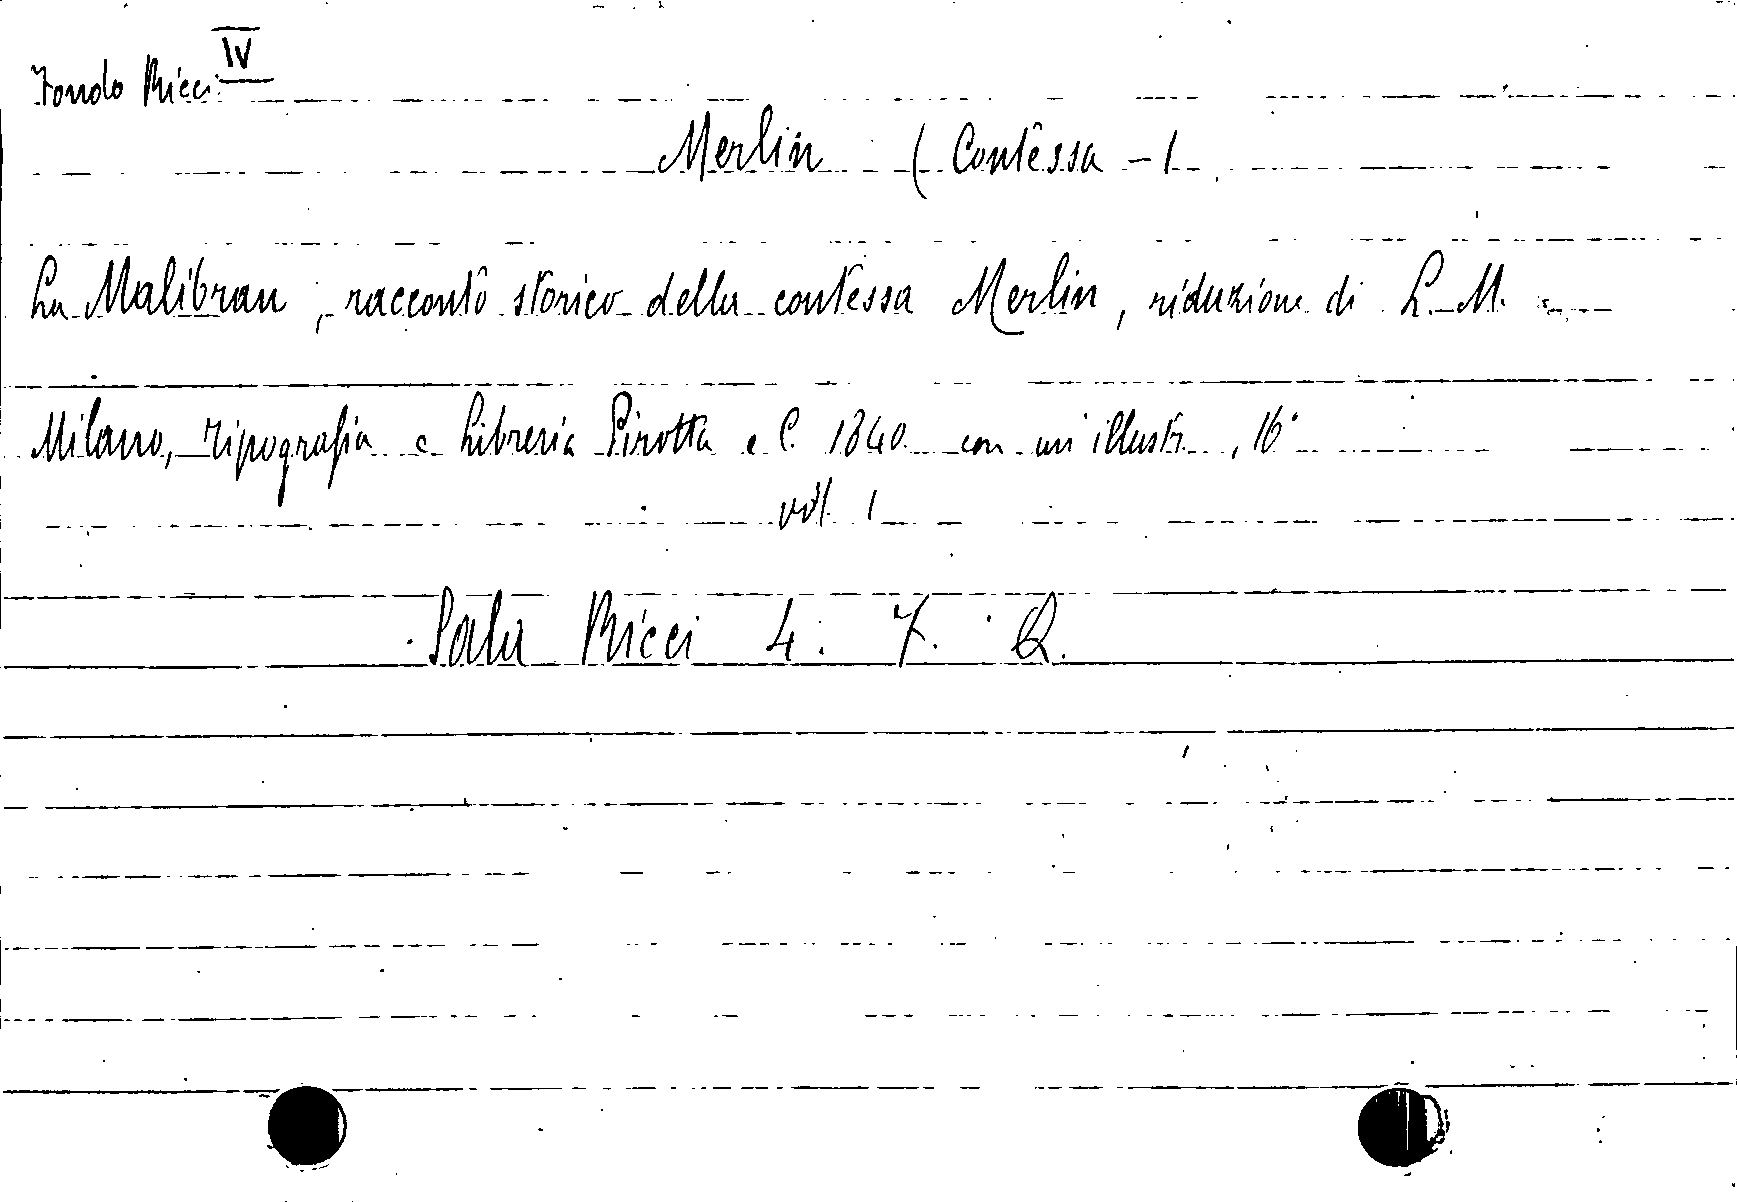 Fondo Ricci IV
Merlin (Contessa -)
La Malibran, racconto storico della contessa Merlin, riduzione di L. M.
Milano, tipografia e libreria Pirotta e C. 1840 con un'illustr., 16°
vol. 1
Sala Ricci 4. 7. Q.